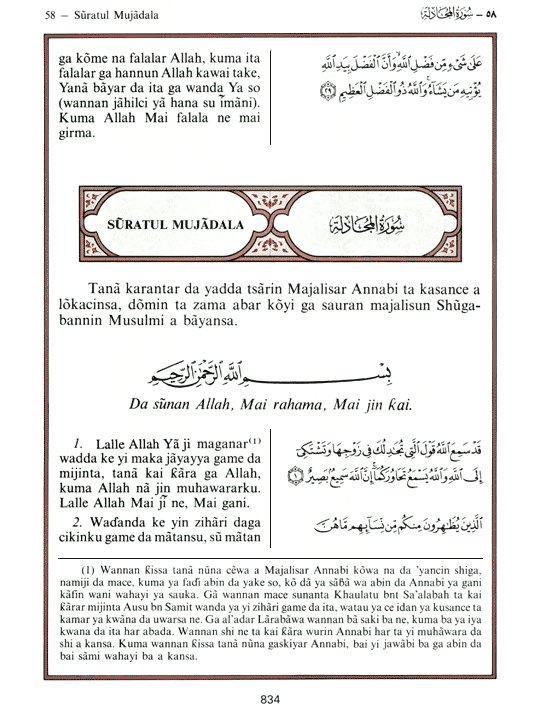 58 — Sũratul Mujãdala
٥٨ - سُورَةُ المُجَادلة
ga kõme na falalar Allah, kuma ita
falalar ga hannun Allah kawai take,
Yanã bãyar da ita ga wanda Ya so
(wannan jãhilci yã hana su ĩmãni).
Kuma Allah Mai falala ne mai
girma.
عَلَىٰ شَىْءٍ مِّن فَضْلِ ٱللَّهِ وَأَنَّ ٱلْفَضْلَ بِيَدِ ٱللَّهِ
يُؤْتِيهِ مَن يَشَآءُ وَٱللَّهُ ذُو ٱلْفَضْلِ ٱلْعَظِيمِ ﴿٢٩﴾
SŨRATUL MUJÃDALA
سُورَةُ المُجَادلة
Tanã karantar da yadda tsãrin Majalisar Annabi ta kasance a
lõkacinsa, dõmin ta zama abar kõyi ga sauran majalisun Shũga-
bannin Musulmi a bãyansa.
بِسْمِ ٱللَّهِ ٱلرَّحْمَٰنِ ٱلرَّحِيمِ
Da sũnan Allah, Mai rahama, Mai jin ƙai.
1. Lalle Allah Yã ji maganar(1)
wadda ke yi maka jãyayya game da
mijinta, tanã kai ƙãra ga Allah,
kuma Allah nã jin muhawararku.
Lalle Allah Mai jĩ ne, Mai gani.
2. Waɗanda ke yin zihãri daga
cikinku game da mãtansu, sũ mãtan
قَدْ سَمِعَ ٱللَّهُ قَوْلَ ٱلَّتِى تُجَٰدِلُكَ فِى زَوْجِهَا وَتَشْتَكِىٓ
إِلَى ٱللَّهِ وَٱللَّهُ يَسْمَعُ تَحَاوُرَكُمَآ إِنَّ ٱللَّهَ سَمِيعٌۢ بَصِيرٌ ﴿١﴾
ٱلَّذِينَ يُظَٰهِرُونَ مِنكُم مِّن نِّسَآئِهِم مَّا هُنَّ
(1) Wannan ƙissa tanã nũna cẽwa a Majalisar Annabi kõwa na da 'yancin shiga,
namiji da mace, kuma ya faɗi abin da yake so, kõ dã ya sãɓã wa abin da Annabi ya gani
kãfin wani wahayi ya sauka. Gã wannan mace sunanta Khaulatu bnt Sa'alabah ta kai
ƙãrar mijinta Ausu bn Samit wanda ya yi zihãri game da ita, watau ya ce idan ya kusance ta
kamar ya kwãna da uwarsa ne. Ga al'adar Lãrabãwa wannan bã saki ba ne, kuma ba ya iya
kwana da ita har abada. Wannan shi ne ta kai ƙãra wurin Annabi har ta yi muhãwara da
shi a kansa. Kuma wannan ƙissa tanã nũna gaskiyar Annabi, bai yi jawãbi ba ga abin da
bai sãmi wahayi ba a kansa.
834